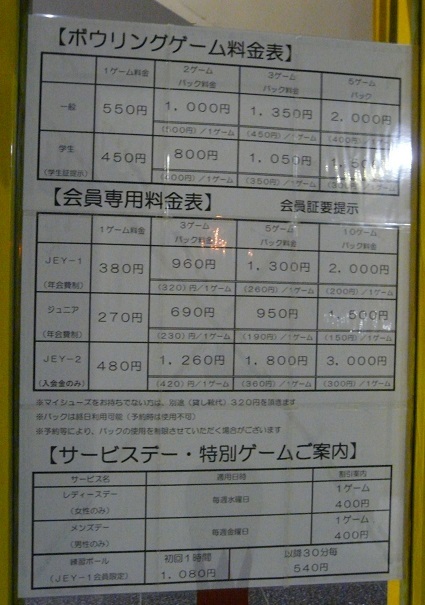 【ボウリングゲーム料金表】
1ゲーム料金 2ゲームパック料金 3ゲームパック料金 5ゲームパック
一般 550円 1.000円 1.350円 2.000円
(500円)/1ゲーム (450円)/1ゲーム (400円)/1ゲーム
学生 450円 800円 1.050円 1.500円
(学生証提示) (400円)/1ゲーム (350円)/1ゲーム
【会員専用料金表】 会員証要提示
1ゲーム料金 3ゲームパック料金 5ゲームパック料金 10ゲームパック料金
JEY-1 380円 960円 1.300円 2.000円
(年会費制) (320)円/1ゲーム (260円)/1ゲーム (200円)/1ゲーム
ジュニア 270円 690円 950円 1.500円
(年会費制) (230)円/1ゲーム (190円)/1ゲーム (150円)/1ゲーム
JEY-2 480円 1.260円 1.800円 3.000円
(入会金のみ) (420)円/1ゲーム (360円)/1ゲーム (300円)/1ゲーム
※マイシューズをお持ちでない方は、別途(貸し靴代)320円を頂きます
※パックは終日利用可能(予約時は使用不可)
※予約等により、パックの使用を制限させていただく場合がございます
【サービスデー・特別ゲームご案内】
サービス名 適用日時 割引案内
レディースデー(女性のみ) 毎週水曜日 1ゲーム400円
メンズデー(男性のみ) 毎週金曜日 1ゲーム400円
練習ボール 初回1時間 以降30分毎
(JEY-1会員限定) 1.080円 540円